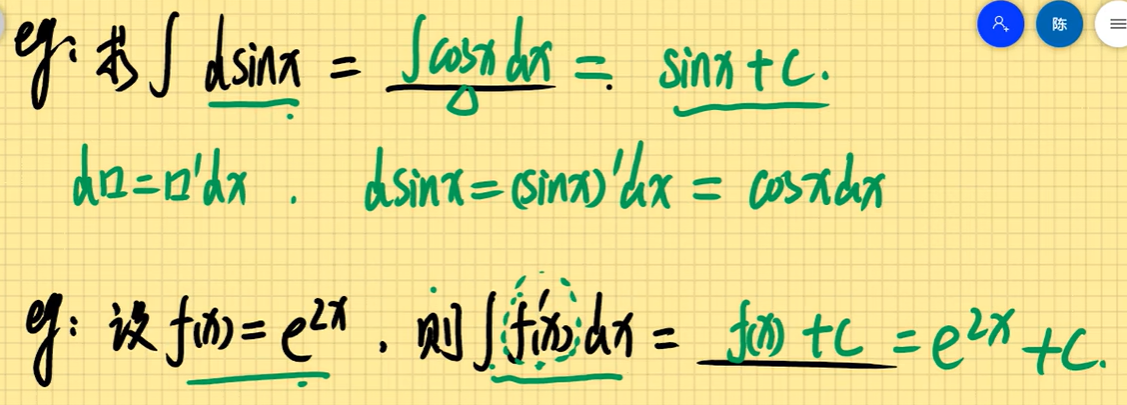 陈
eg: 求∫dsinx = ∫cosxdx = sinx+C.
d□=□'dx . dsinx=(sinx)'dx = cosxdx
eg: 设f(x)=e^{2x} . 则∫f'(x)dx = f(x)+C = e^{2x}+C.